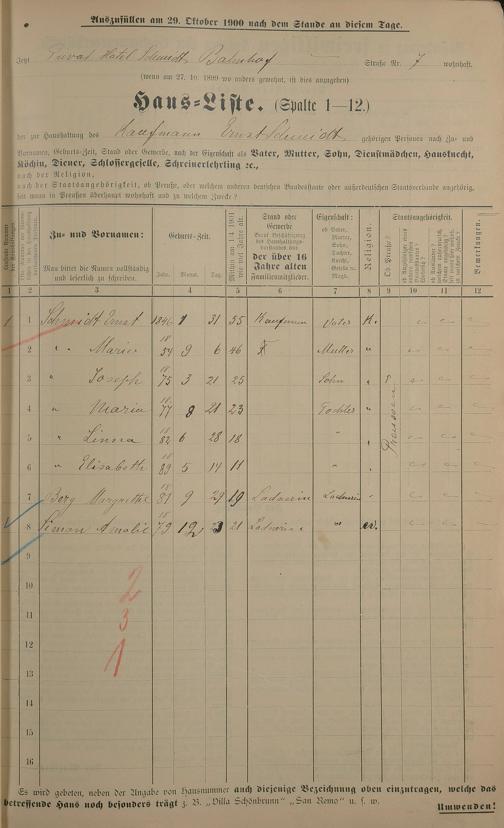 Auszufüllen am 29. Oktober 1900 nach dem Stande an diesem Tage.
Jetzt Privat Hotel Schmidt, Bahnhof Straße Nr. 7 wohnhaft.
(wenn am 27. 10. 1899 wo anders gewohnt, ist dies anzugeben)
Haus-Liste. (Spalte 1—12.)
der zur Haushaltung des Kaufmann Ernst Schmidt gehörigen Personen nach Zu- und
Vornamen, Geburts-Zeit, Stand oder Gewerbe, nach der Eigenschaft als Vater, Mutter, Sohn, Dienstmädchen, Hausknecht,
Köchin, Diener, Schlossergeselle, Schreinerlehrling ec.,
nach der Religion,
nach der Staatsangehörigkeit, ob Preuße, oder welchem anderen deutschen Bundesstaate oder außerdeutschen Staatsverbande angehörig,
seit wann in Preußen überhaupt wohnhaft und zu welchem Zwecke?
Zu- und Vornamen:
Man bittet die Namen vollständig
und leserlich zu schreiben.
Geburts-Zeit.
Jahr. Monat. Tag.
Stand oder
Gewerbe
der über 16
Jahre alten
Familienmitglieder.
Eigenschaft:
ob Vater,
Mutter,
Sohn,
Tochter,
Knecht,
Geselle,
Magd.
Religion.
Staatsangehörigkeit.
Ob Preuße?
Bemerkungen.
1 2 3 4 5 6 7 8 9 10 11 12
1 1 Schmidt Ernst 1846 1 31 55 Kaufmann Vater K.
2 " Maria 1854 9 6 46 Mutter "
3 " Joseph 1875 3 21 25 Sohn "
4 " Maria 1877 8 21 23 Tochter "
5 " Linna 1882 6 28 18 " "
6 " Elisabeth 1889 5 14 11 " "
Preussen
7 Berg Margrethe 1881 9 29 19 Ladnerin Ladnerin "
8 Simon Amalie 1879 12 3 21 Ladnerin " ev.
9
10
2
11
3
12
1
13
14
15
16
Es wird gebeten, neben der Angabe von Hausnummer auch diejenige Bezeichnung oben einzutragen, welche das
betreffende Haus noch besonders trägt z. B. „Villa Schönbrunn" „San Remo" u. s. w.
Umwenden!